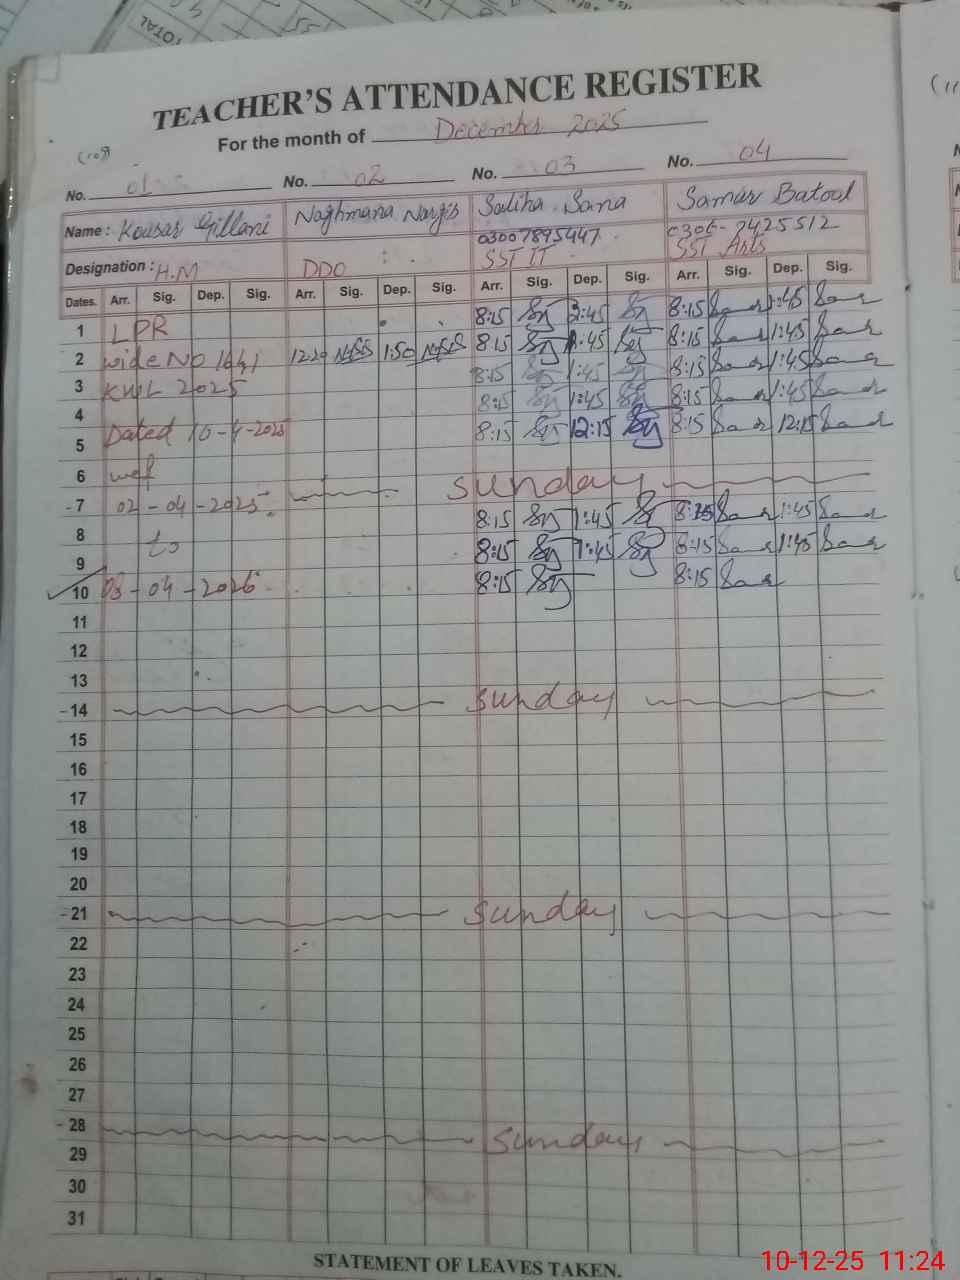 TOTAL
TEACHER'S ATTENDANCE REGISTER
For the month of December 2025
No. 01 No. 02 No. 03 No. 04
Name : Kousar Gillani Naghmana Nargis Saliha Sana Samar Batool
03007895447 0306-7425512
Designation : H.M DDO SST IT SST Arts
Dates. Arr. Sig. Dep. Sig. Arr. Sig. Dep. Sig. Arr. Sig. Dep. Sig. Arr. Sig. Dep. Sig.
1 LPR 8:15 1:45 8:15 Sar 1:45 Sar
2 wide No 1641 12:20 Nargis 1:50 Nargis 8:15 1:45 8:15 Sar 1:45 Sar
3 KWL 2025 8:15 1:45 8:15 Sar 1:45 Sar
4 8:15 1:45 8:15 Sar 1:45 Sar
5 Dated 10-4-2025 8:15 12:15 8:15 Sar 12:15 Sar
6 wef
7 02-04-2025 Sunday
8 to 8:15 1:45 8:15 Sar 1:45 Sar
9 8:15 1:45 8:15 Sar 1:45 Sar
10 03-04-2026 8:15 8:15 Sar
11
12
13
14 Sunday
15
16
17
18
19
20
21 Sunday
22
23
24
25
26
27
28 Sunday
29
30
31
STATEMENT OF LEAVES TAKEN.
10-12-25 11:24